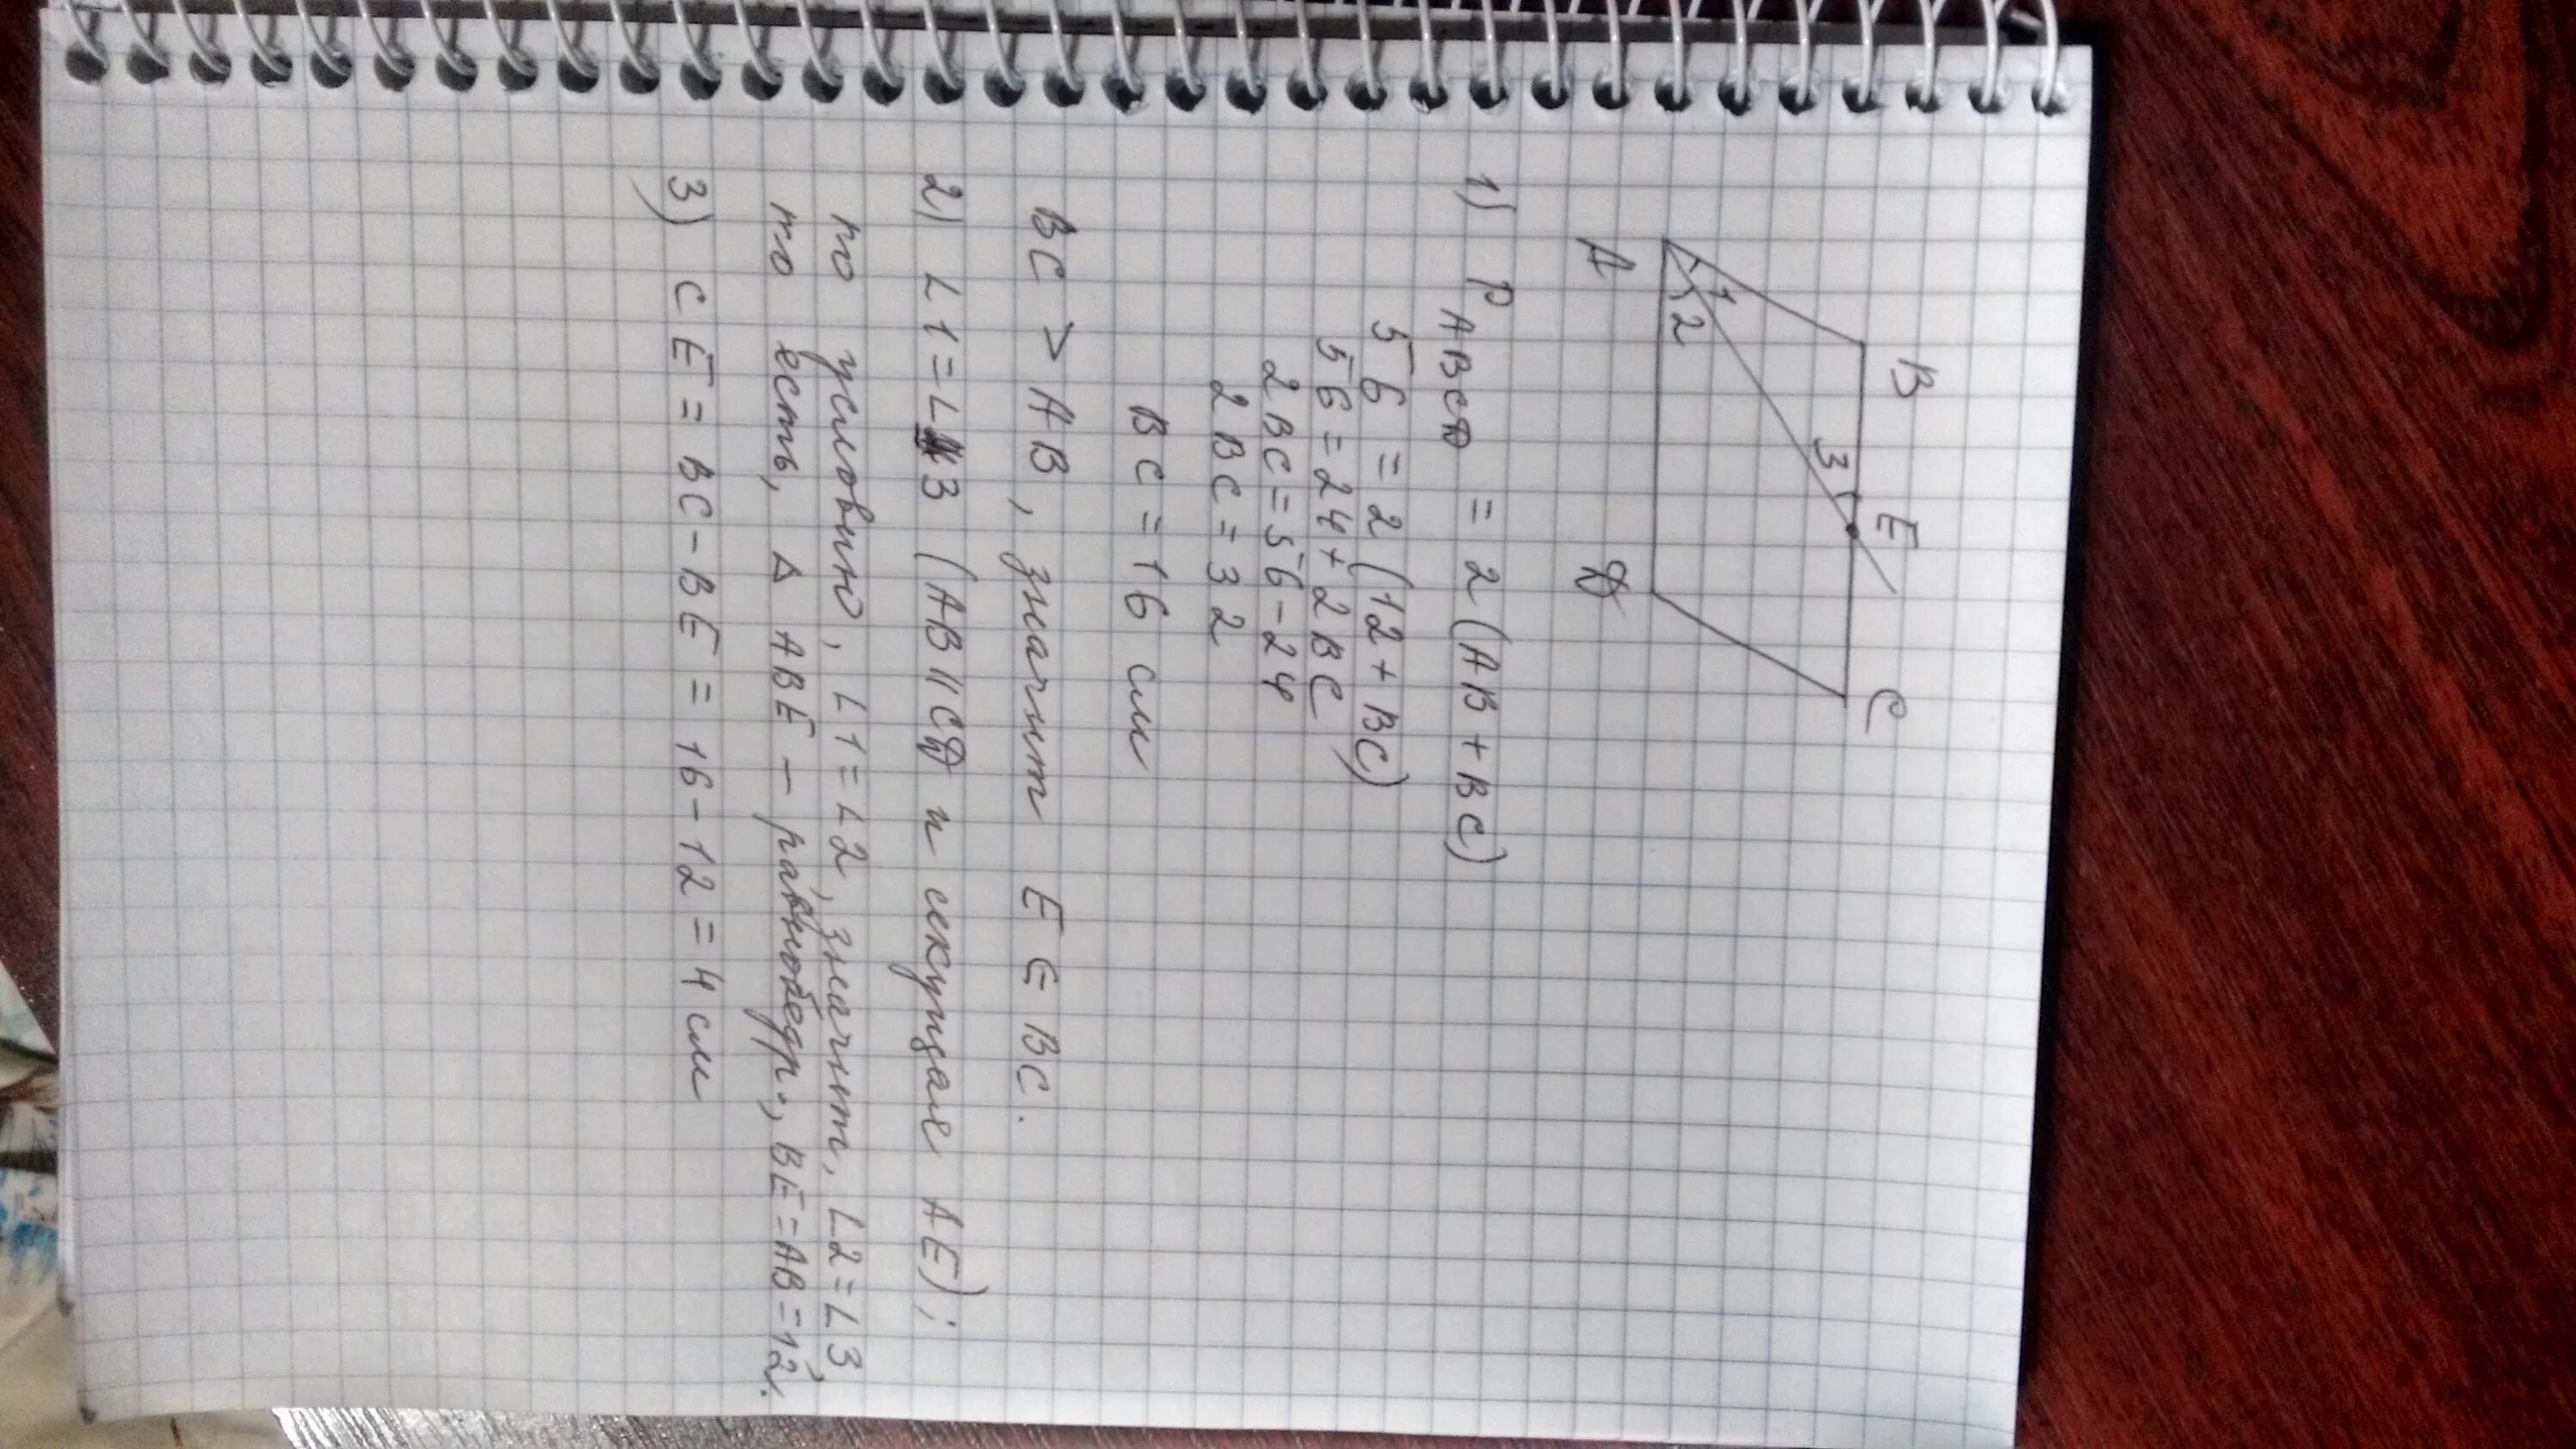 B E C
1 3
2
A D
1) P ABCD = 2 (AB + BC)
56 = 2 (12 + BC)
56 = 24 + 2BC
2BC = 56 - 24
2BC = 32
BC = 16 см
BC > AB, значит E ∈ BC.
2) ∠1 = ∠3 (AB || CD и секущае AE);
по условию, ∠1 = ∠2, значит, ∠2 = ∠3,
то есть, Δ ABE – равнобедр., BE = AB = 12.
3) CE = BC - BE = 16 - 12 = 4 см